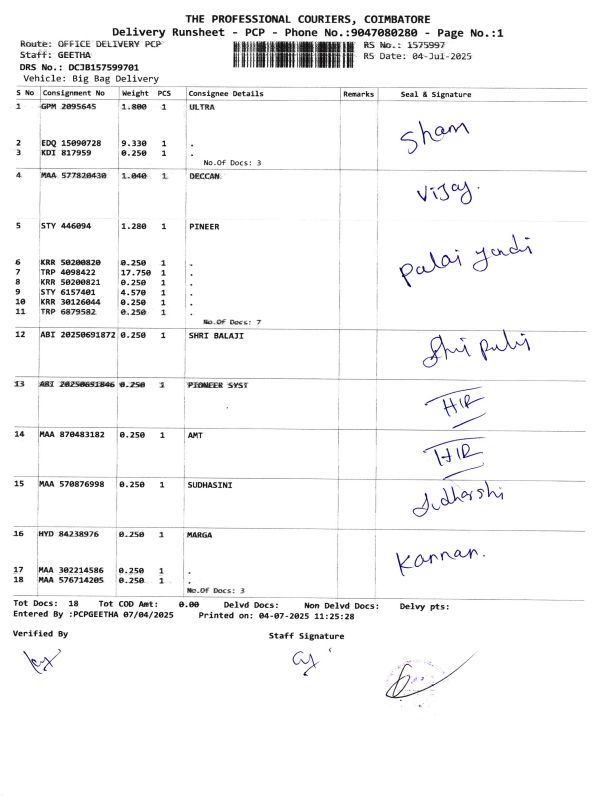 THE PROFESSIONAL COURIERS, COIMBATORE
Delivery Runsheet - PCP - Phone No.:9047080280 - Page No.:1
Route: OFFICE DELIVERY PCP RS No.: 1575997
Staff: GEETHA RS Date: 04-Jul-2025
DRS No.: DCJB157599701
Vehicle: Big Bag Delivery
S No Consignment No Weight PCS Consignee Details Remarks Seal & Signature
1 GPM 2095645 1.800 1 ULTRA
Sham
2 EDQ 15090728 9.330 1 .
3 KDI 817959 0.250 1 .
No.Of Docs: 3
4 MAA 577820430 1.040 1 DECCAN
Vijay.
5 STY 446094 1.280 1 PINEER
6 KRR 50200820 0.250 1 .
7 TRP 4098422 17.750 1 .
8 KRR 50200821 0.250 1 .
9 STY 6157401 4.570 1 .
10 KRR 30126044 0.250 1 .
11 TRP 6879582 0.250 1 .
No.Of Docs: 7
12 ABI 20250691872 0.250 1 SHRI BALAJI
13 ABI 20250691846 0.250 1 PIONEER SYST
14 MAA 870483182 0.250 1 AMT
15 MAA 570876998 0.250 1 SUDHASINI
16 HYD 84238976 0.250 1 MARGA
Kannan.
17 MAA 302214586 0.250 1 .
18 MAA 576714205 0.250 1 .
No.Of Docs: 3
Tot Docs: 18 Tot COD Amt: 0.00 Delvd Docs: Non Delvd Docs: Delvy pts:
Entered By :PCPGEETHA 07/04/2025 Printed on: 04-07-2025 11:25:28
Verified By Staff Signature